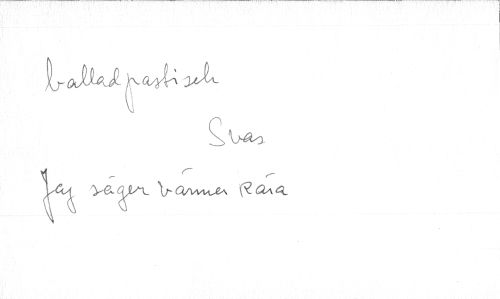 balladpastisch
Svar
Jag säger vänner kära